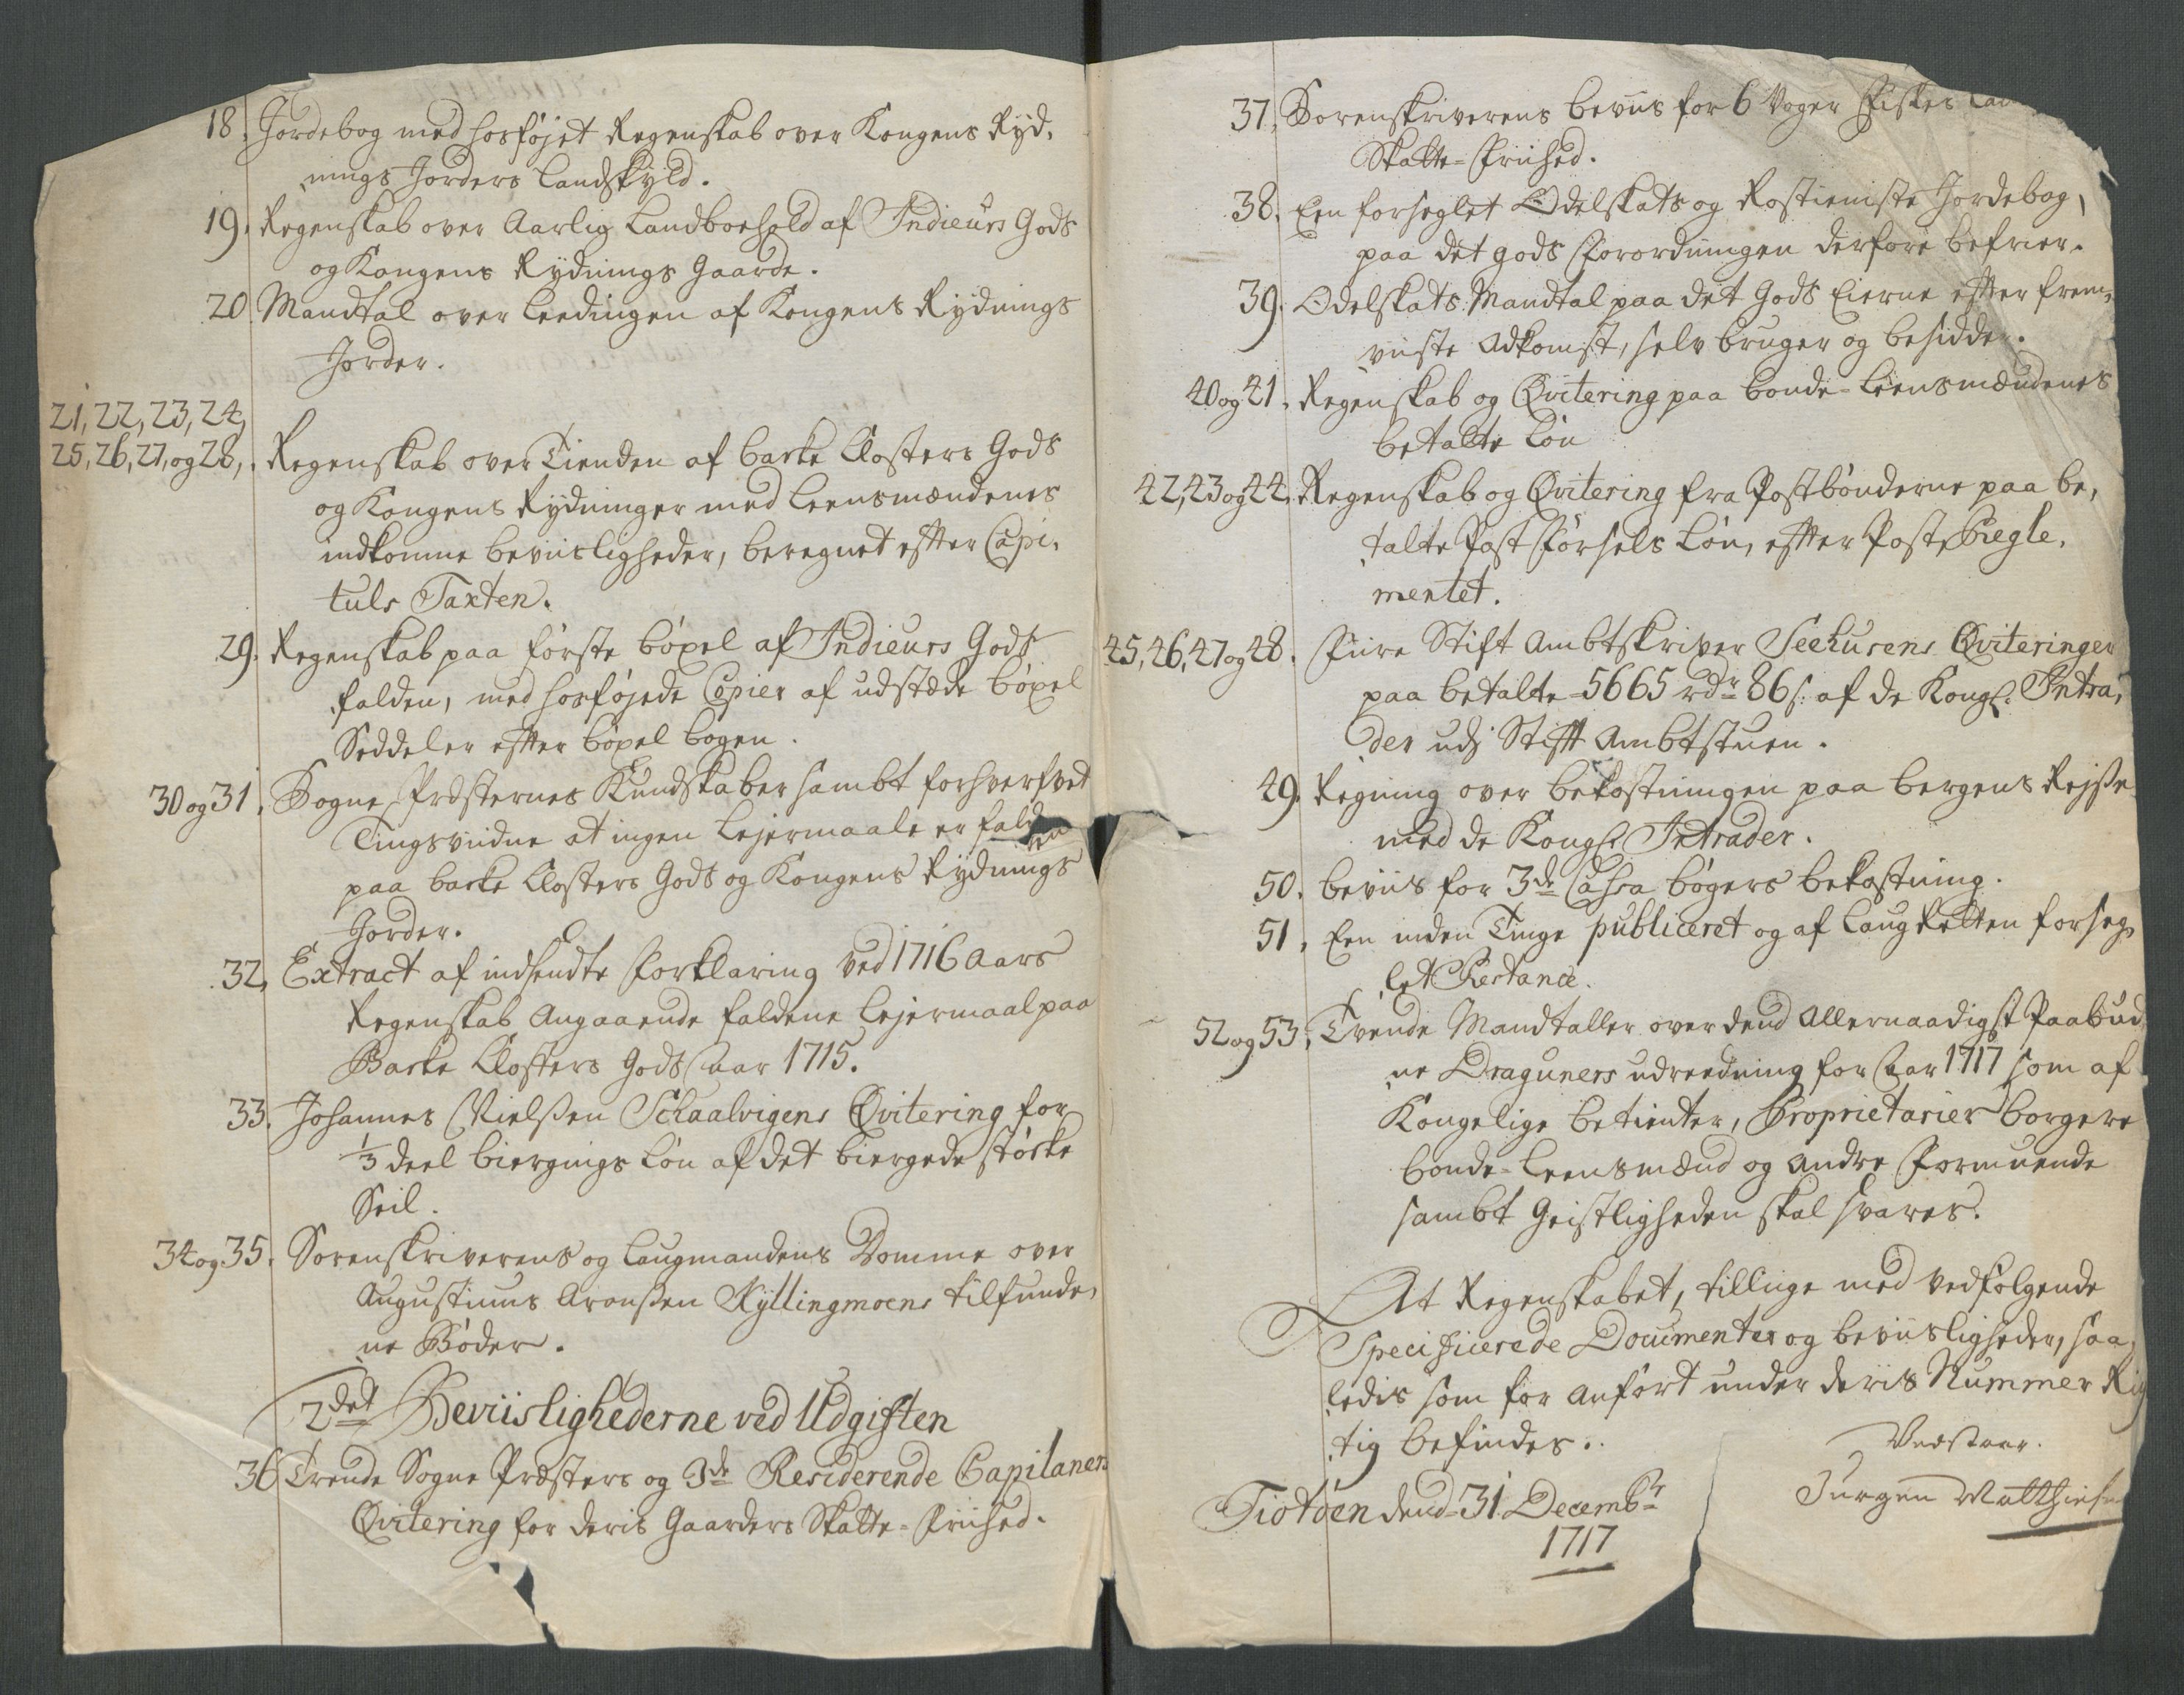 18. Jordebog med hosføjet Regenskab over Kongens Ryd,
nings Jorders Landskyld.
19. Regenskab over Aarlig Landboehold af Indieurs Gods
og Kongens Rydnings Gaarde.
20. Mandtal over Leedingen af Kongens Rydnings
Jorder.
21, 22, 23, 24,
25, 26, 27, og 28,. Regenskab over Tienden af barke Closters Gods
og Kongens Rydninger med Leensmændenes
indkomne beviisligheder, beregnet efter Capi,
tuls Taxten.
29. Regenskab paa første bøxel af Indieurs Gods
falden, med hosføjede Copier af udstæde bøxel
Seddeler efter bøxel bogen.
30 og 31. Sogne Præsternes Kundskaber sambt forhverfvet
Tingsvidne at ingen Lejermaale er fald
en
paa barke Closters Gods og Kongens Rydnings
Jorder.
32. Extract af indsendte Forklaring ved 1716 Aars
Regenskab Angaaende faldene Lejermaal paa
Barke Closters Gods Aar 1715.
33. Johannes Nielsen Schaalvigens Qvitering for
1/3 deel biergings Løn af det biergede støcke
Seil.
34 og 35. Sorenskriverens og Laugmandens Domme over
Augustinus Aronsen Kyllingmoens tilfunde,
ne Bøder.
2det Beviislighederne ved Udgiften
36 Trende Sogne Præsters og 3de Residerende Capilaners
Qvitering for deris Gaarders Skatte-Friihed.
37. Sorenskriverens beviis for 6 Voger Fiskes
Skatte-Friihed.
38. Een forseglet Odelskats og Rostieniste Jordebog,
paa det gods Forordningen derfore befrier.
39. Odelskats Mandtal paa det Gods Eierne efter frem,
viiste Adkomst, selv bruger og besidder.
40 og 41. Regenskab og Qvitering paa bonde-Leensmændenes
betalte Løn
42, 43 og 44. Regenskab og Qvitering fra Postbønderne paa be,
talte Post Førsels Løn, efter Post Regle,
mentet.
45, 46, 47 og 48. Fiire Stift Ambtskriver Seehusens Qviteringer
paa betalte 5665 rdr 86 s: af de Kongl. Intra,
der udj Stift Ambtstuen.
49. Regning over bekostningen paa bergens Rejse
med de Kongl Intrader.
50. beviis for 3de Cassa bøgers bekostning.
51. Een inden Tinge publiceret og af Laug Retten forseg,
let Restance.
52 og 53. Tvende Mandtaller over dend Allernaadigst Paabud,
ne Draguners udreedning for Aar 1717 som af
Kongelige betienter, Proprietarier borgere
bonde-Leensmænd og Andre Formuende
sambt Geistligheden skal svares.
At Regenskabet, tillige med vedfølgende
Specificerede Documenter og beviisligheder, saa,
ledis som for anført under deris Nummer Rig
tig befindes.
Tiotøen dend 31 Decembr
1717
Jurgen Matthiesen